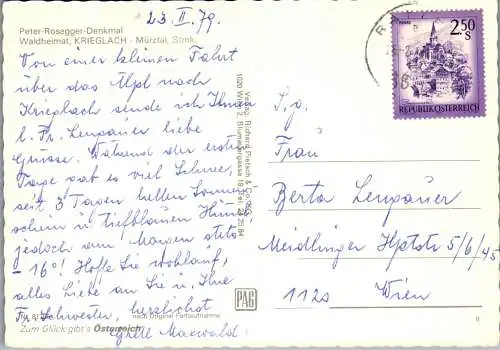 23. II. 79.
Peter-Rosegger-Denkmal
Waldheimat, KRIEGLACH - Mürztal, Stmk.
Von einer kleinen Fahrt
über das Alpl nach
Krieglach sende ich Ihnen
l. Fr. Lenpauer liebe
Grüsse. Während der ersten
Tage gab es viel Schnee,
seit 3 Tagen hellen Sonnen-
schein u. tiefblauen Himmel
jedoch am Morgen stets
- 16°! Hoffe Sie wohlauf,
alles Liebe an Sie u. Ihre
Fr. Schwester, herzlichst
Maxwald.
nach Original Farbaufnahme
Zum Glück gibt's Österreich
Verlag: Richard Pietsch & Co.
1020 Wien 2, Blumauergasse 19
PAG
2.50
S
REPUBLIK ÖSTERREICH
S. g.
Frau
Berta Lenpauer
Meidlinger Hptstr 5/6/45
1120 Wien